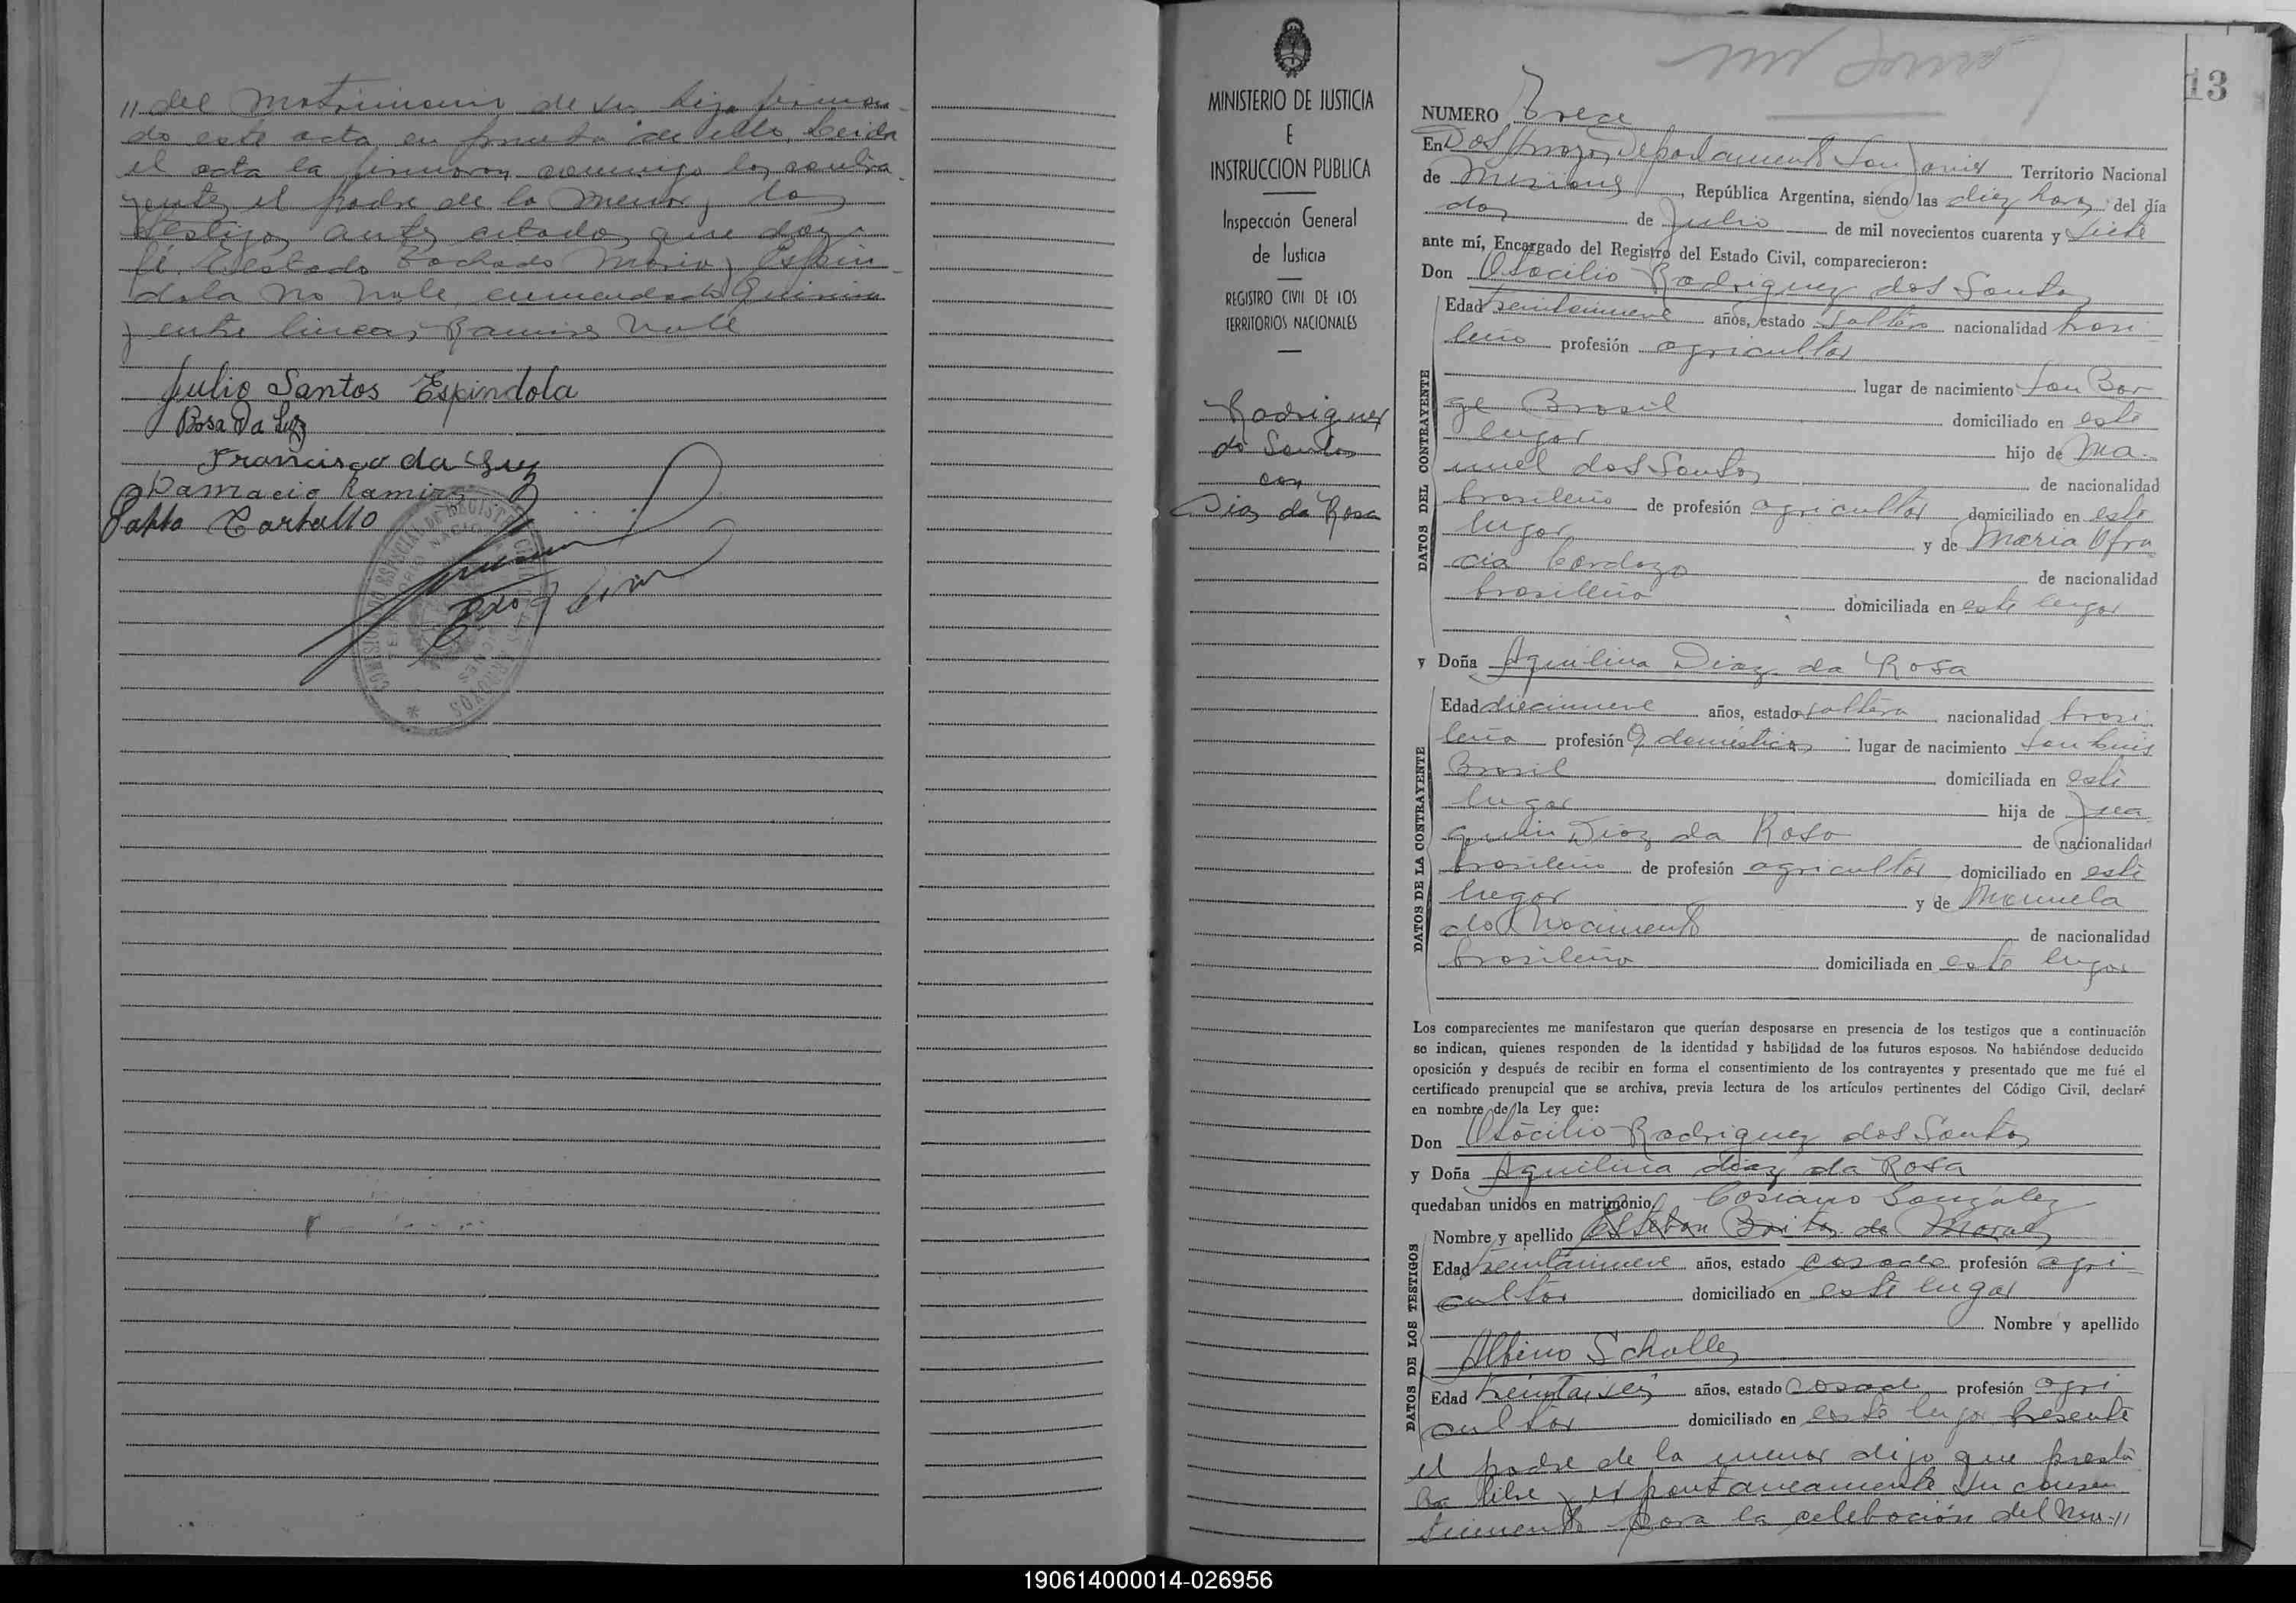 // del Matrimonio de su hija firman-
do este acta en prueba de ello, Leida
el acta la firmaron conmigo los contra
yentes el padre de la menor y los
testigos antes citados que doy
fé. Testado Tachado Maria y Espin-
dola no vale, enmendado
y entre lineas Ramires vale
Julio Santos Espindola
Rosa Da Luz
Francisco da Luz
Damacio Ramirez
Pablo Carballo
MINISTERIO DE JUSTICIA
E
INSTRUCCION PUBLICA
Inspección General
de Justicia
REGISTRO CIVIL DE LOS
TERRITORIOS NACIONALES
Rodriguez
do Santos
con
Dias da Rosa
13
NUMERO Trece
En Dos Arroyos Departamento San Javier Territorio Nacional
de Misiones, República Argentina, siendo las diez horas del día
dos de Julio de mil novecientos cuarenta y siete
ante mí, Encargado del Registro del Estado Civil, comparecieron:
Don Otacilio Rodriguez dos Santos
DATOS DEL CONTRAYENTE
Edad treintainueve años, estado soltero nacionalidad brasi
leño profesión agricultor
lugar de nacimiento San Bor
ge Brasil domiciliado en este
lugar hijo de Ma-
nuel dos Santos de nacionalidad
brasileño de profesión agricultor domiciliado en este
lugar y de Maria Ofra
cia Cardozo de nacionalidad
brasileña domiciliada en este lugar
y Doña Aquilina Diaz da Rosa
DATOS DE LA CONTRAYENTE
Edad diecinueve años, estado soltera nacionalidad brasi
leña profesión Q domésticos lugar de nacimiento San Luis
Brasil domiciliada en este
lugar hija de Jua
quin Diaz da Rosa de nacionalidad
brasileño de profesión agricultor domiciliado en este
lugar y de Manuela
do Nacimento de nacionalidad
brasileña domiciliada en este lugar
Los comparecientes me manifestaron que querían desposarse en presencia de los testigos que a continuación
se indican, quienes responden de la identidad y habilidad de los futuros esposos. No habiéndose deducido
oposición y después de recibir en forma el consentimiento de los contrayentes y presentado que me fué el
certificado prenupcial que se archiva, previa lectura de los artículos pertinentes del Código Civil, declaré
en nombre de la Ley que:
Don Otacilio Rodriguez dos Santos
y Doña Aquilina diaz da Rosa
quedaban unidos en matrimonio. Casiano González
DATOS DE LOS TESTIGOS
Nombre y apellido Esteban Brites de Moraes
Edad treintainueve años, estado casado profesión agri
cultor domiciliado en este lugar
Nombre y apellido
Albino Scholles
Edad treintaiseis años, estado casado profesión agri
cultor domiciliado en este lugar Presente
el padre de la menor dijo que presta
ba libre y espontaneamente su consen
timiento para la celebración del Ma-//
190614000014-026956